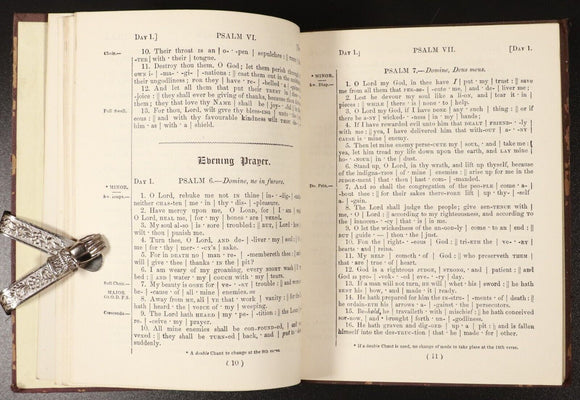 DAY I.] PSALM VI.
Choir.—
10. Their throat is an | o- · -pen | sepulchre : || they
-TER | with · their | tongue.
11. Destroy thou them, O God ; let them perish through
own i- | -ma- · -gi- | -nations : || cast them out in the
their ungodliness ; for they | have re- | -belled a-
12. And let all them that put their TRUST in
-joice : || they shall ever be giving of thanks, because thou
them ; they that love thy NAME | shall be | joy-
Full Swell.
13. For thou, Lord, wilt give thy blessing
-eous : || and with thy favourable kindness wilt thou
him · as | with a | shield.
Evening Prayer.
DAY I. PSALM 6.—Domine, ne in furore.
* MINOR.
1. O Lord, rebuke me not IN thine | in- · -dig-
neither CHAS-ten | me · in | thy dis- | -pleasure.
2. Have mercy upon me, O LORD, for | I · am |
O LORD, HEAL me, | for · my | bones · are | vexed.
3. My soul also | is · sore | troubled : || BUT, | Lord
wilt · thou | punish me.
4. Turn thee, O Lord, AND de- | -liver · my | soul :
me | for · thy | mer- · -cy's | sake.
5. For in DEATH no | man · re- | -membereth thee : ||
will | give · thee | thanks · IN the | pit ?
6. I am weary of my groaning, every NIGHT wash I
bed : || AND | water · my | couch · with my | tears.
7. My beauty is GONE for | ve- · -ry | trouble : || and
be- | -cause · of | all · mine | enemies.
8. Away from ME, all | YE that · work | vanity : || for the
hath | heard · the | voice · of my | weeping.
9. The Lord hath HEARD | my · pe- | -tition : || the Lord
re- | -ceive · my | prayer.
10. All mine enemies shall be CON-FOUND-ed, | and
vexed : || they shall BE TURN-ed | back, · and | put
suddenly.
* A double Chant to change at the 8th verse.
( 10 )
DAY I.] PSALM VII. [DAY I.
PSALM 7.—Domine, Deus meus.
* MINOR.
1. O Lord my God, in thee have I | put · my | trust : || save
me from all them that PER-SE- | -cute · me, | and · de- | -liver me ;
2. Lest he devour my soul like a LI-ON, and | tear it · in |
pieces : || WHILE | there · is | none · to | help.
3. O Lord my God, if I have DONE | any · such | thing : || or if
there be A-NY | wicked- · -ness | in · my | hands ;
4. If I have rewarded evil unto him that DEALT | FRIEND- · -ly |
with me : || yea, I have delivered him that with-OUT | a- · -NY
CAUSE is | mine · enemy.
5. Then let mine enemy perse-CUTE my | soul, · and | take me : ||
yea, let him tread my life down upon the earth, and LAY mine |
ho- · -NOUR | in · the | dust.
6. Stand up, O Lord, in thy wrath, and lift up thyself, because
of the indigna-TION | of · mine | enemies : || arise up for me in the
JUDGE-MENT | that · thou | hast · com- | -manded.
7. And so shall the congregation of the PEO-PLE | come · a- |
-bout thee : || for their sakes there-FORE lift | up · thy | -self
a | -gain.
8. The Lord shall judge the people ; give SEN-TENCE with |
me, · O | Lord : || according to my righteousness, and according
to the INNOCEN- | -cy · that | is · in | me.
9. O let the wickedness of the UN-GOD-LY | come · to an | end : ||
BUT | guide · — | thou · the | just.
10. FOR the | right- · -eous | God : || TRI-ETH the | ve- · -ry |
hearts · and | reins.
11. My HELP | cometh · of | God : || who preserveth THEM |
that · are | true · of | heart.
12. God is a righteous JUDGE, | STRONG, · and | patient : || and
God is PRO- | -vok- · -ed | eve- · -ry | day.
13. If a man will not turn, HE will | whet · his | sword : || he hath
BENT his | bow, · and | made · it | ready.
14. He hath prepared for him the IN-STRU- | -ments · of | death : ||
he ordain-ETH his | arrows · a- | -gainst · the | persecutors.
15. Be-HOLD, he | travaileth · with | mischief : || he hath conceived
SOR-ROW, | and · brought | forth · un- | -godliness.
16. He hath graven and DIG-GED | up · a | pit : || and is fallen
himself into the DES-TRUC-TION | that · he | made · for | other.
* If a double Chant is used, no change of mode to take place at the 18th verse.
( 11 )